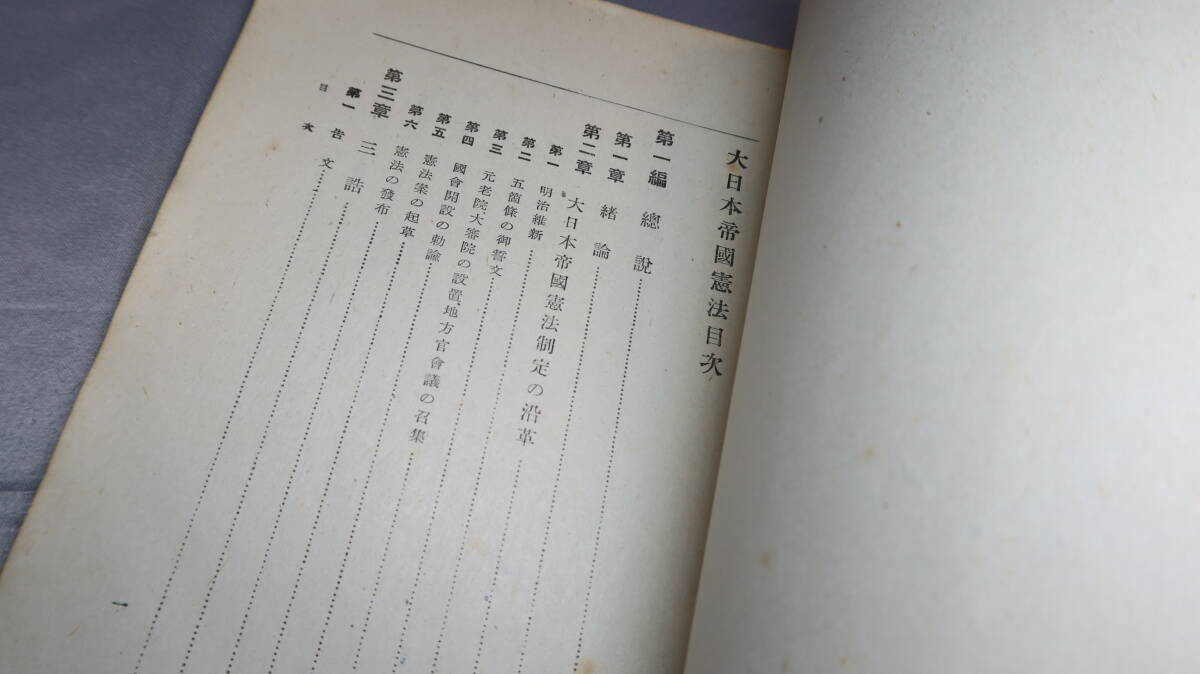 大日本帝國憲法目次
第一編 總說
第一章 緖論
第二章 大日本帝國憲法制定の沿革
第一 明治維新
第二 五箇條の御誓文
第三 元老院、大審院の設置、地方官會議の召集
第四 國會開設の勅諭
第五 憲法案の起草
第六 憲法の發布
第三章 三誥
第一 告文
目次
一